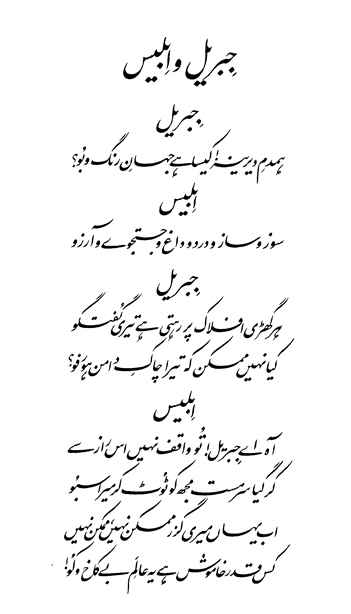 جبریل و ابلیس
جبریل
ہمدمِ دیرینہ! کیسا ہے جہانِ رنگ و بُو؟
اِبلیس
سوز و ساز و درد و داغ و جستجوے و آرزو
جبریل
ہر گھڑی افلاک پر رہتی ہے تیری گُفتگو
کیا نہیں ممکن کہ تیرا چاکِ دامن ہو رفو؟
اِبلیس
آہ اے جبریل! تُو واقف نہیں اس راز سے
کر گیا سرمست مجھ کو ٹُوٹ کر میرا سبُو
اب یہاں میری گزر ممکن نہیں، ممکن نہیں
کس قدر خاموش ہے یہ عالَمِ بے کاخ و کُو!